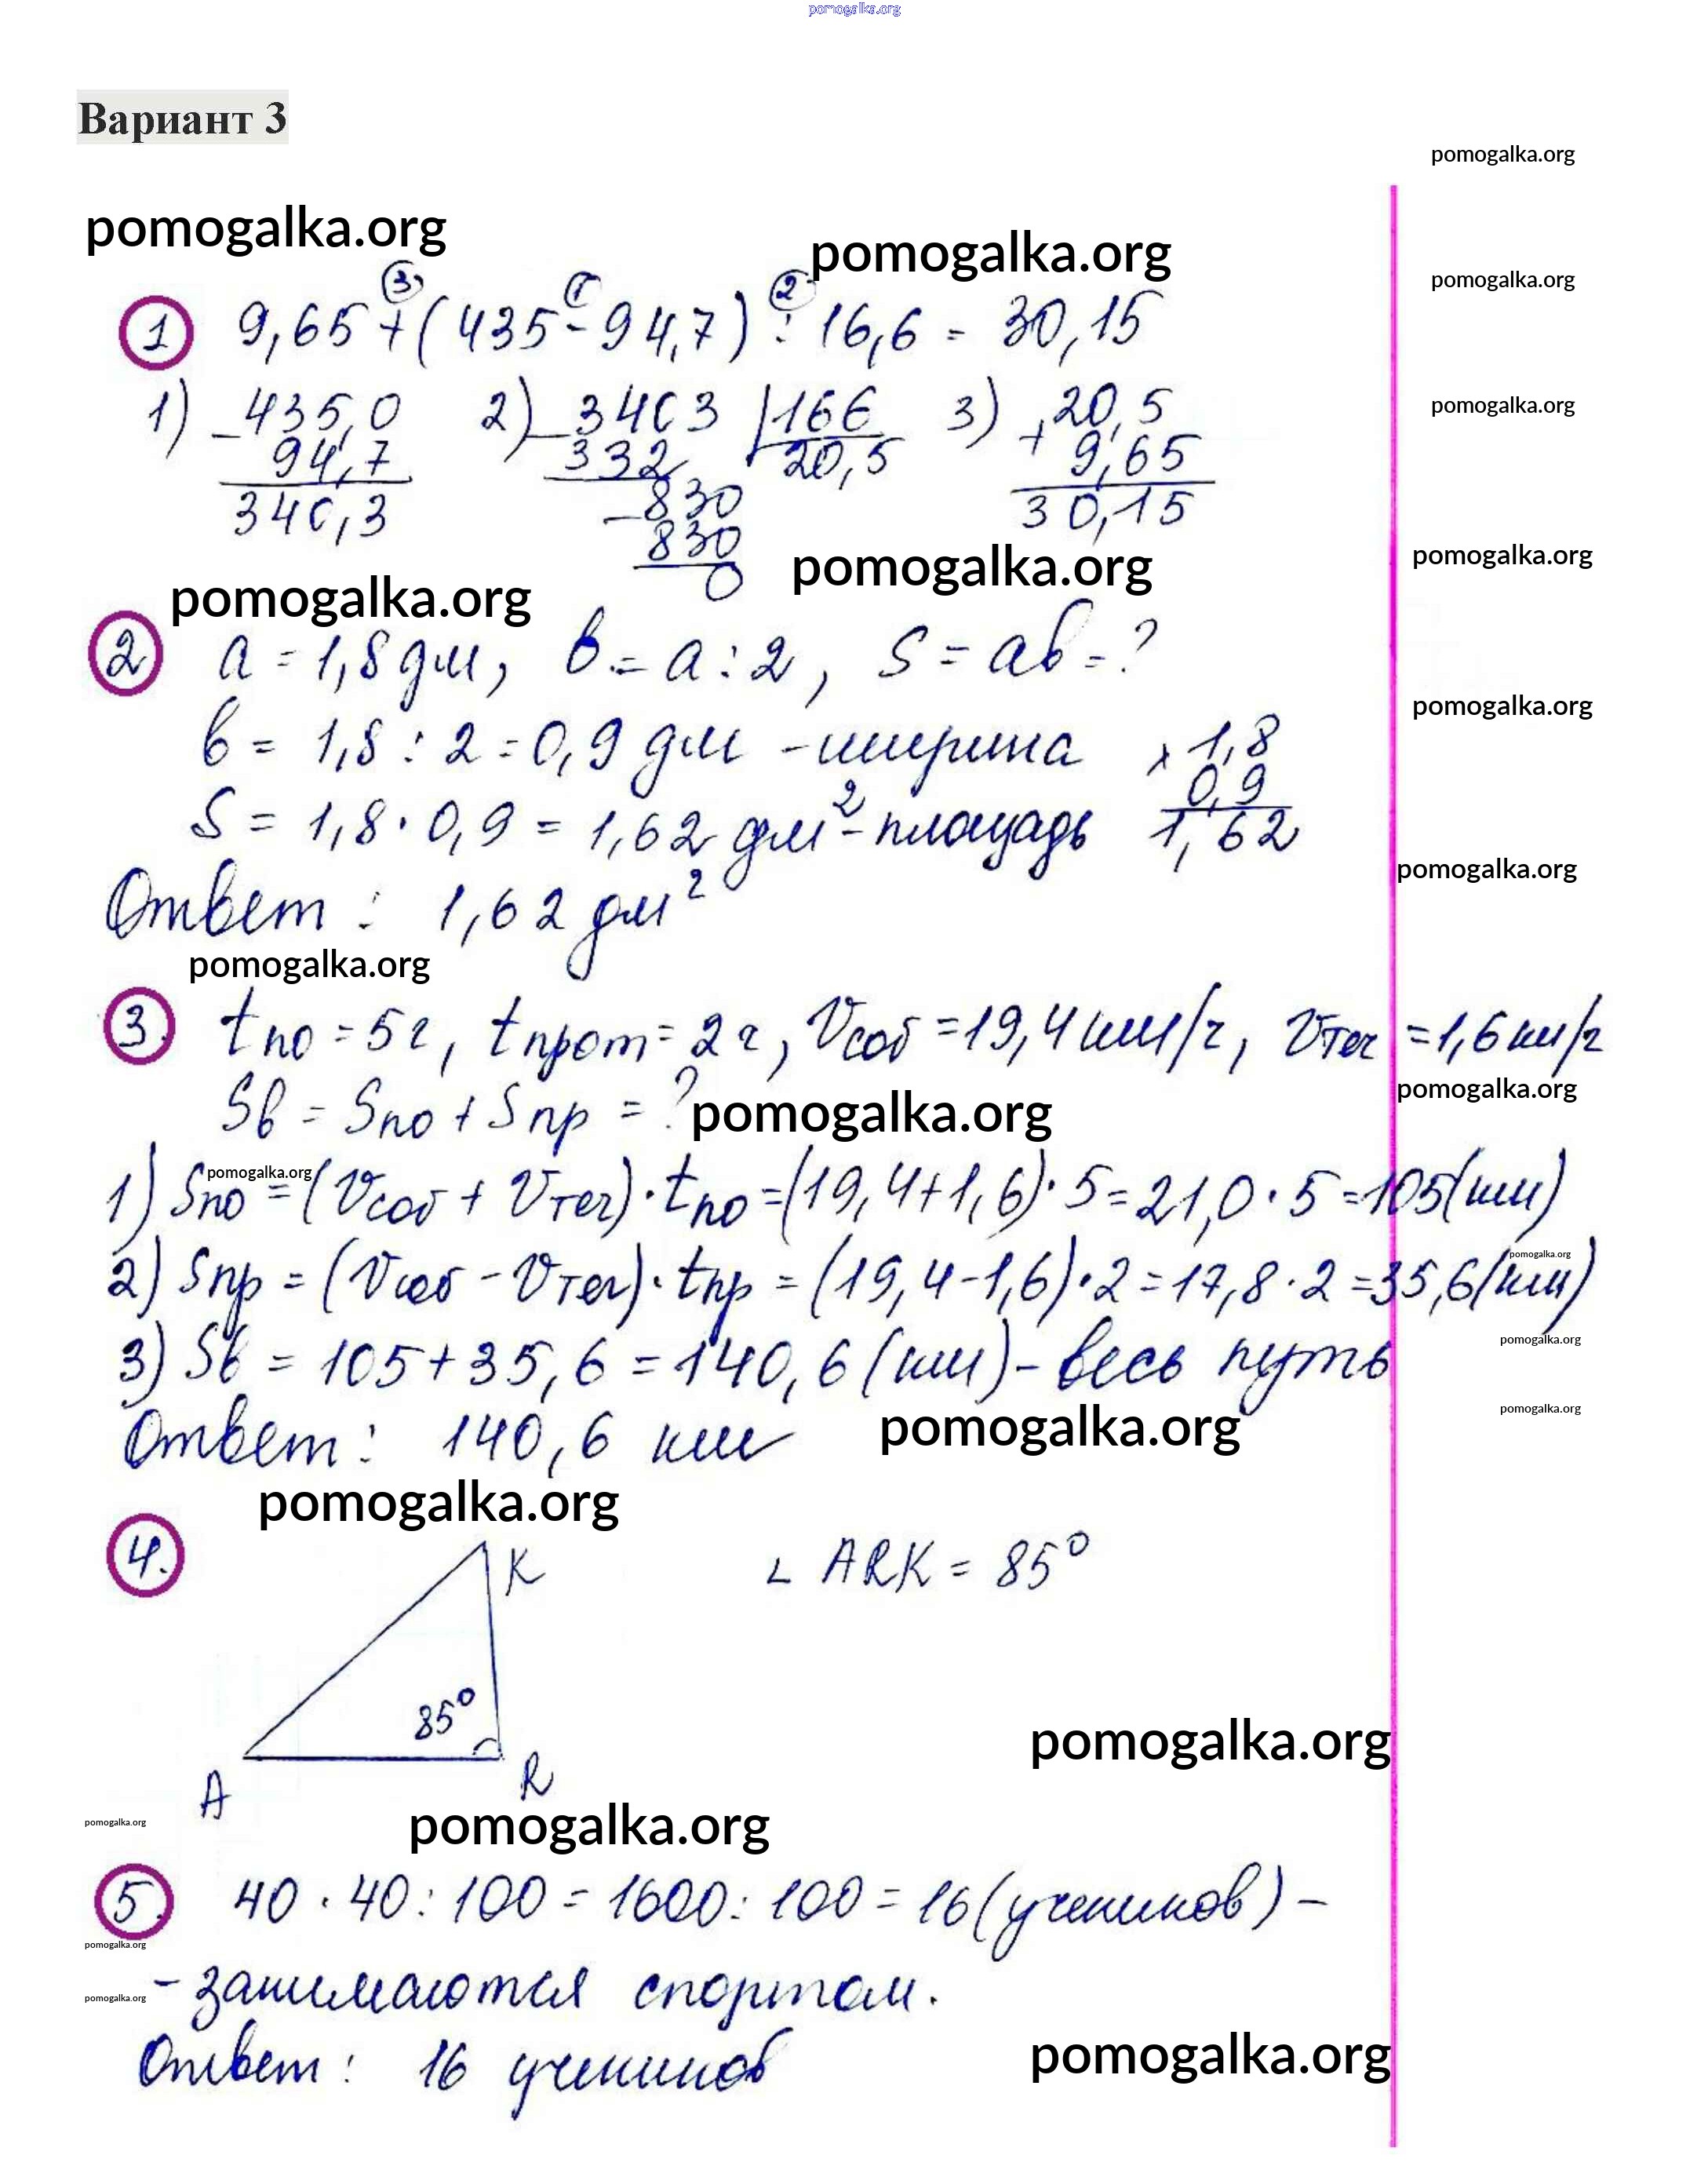 pomogalka.org
Вариант 3
pomogalka.org
pomogalka.org
pomogalka.org
pomogalka.org
3 1 2
1 9,65 + (435 - 94,7) : 16,6 = 30,15
pomogalka.org
1) - 435,0 2) - 3403 | 166 3) + 20,5
94,7 332 20,5 9,65
340,3 - 830 30,15
830
0
pomogalka.org
pomogalka.org
pomogalka.org
2 a = 1,8 дм, b = a : 2, S = ab = ?
pomogalka.org
b = 1,8 : 2 = 0,9 дм - ширина × 1,8
0,9
S = 1,8 · 0,9 = 1,62 дм² - площадь 1,62
pomogalka.org
Ответ : 1,62 дм²
pomogalka.org
3. tпо = 5 ч, tпрот = 2 ч, Vсоб = 19,4 км/ч, Vтеч = 1,6 км/ч
pomogalka.org
Sв = Sпо + Sпр = ? pomogalka.org
pomogalka.org
1) Sпо = (Vсоб + Vтеч) · tпо = (19,4 + 1,6) · 5 = 21,0 · 5 = 105 (км)
pomogalka.org
2) Sпр = (Vсоб - Vтеч) · tпр = (19,4 - 1,6) · 2 = 17,8 · 2 = 35,6 (км)
pomogalka.org
3) Sв = 105 + 35,6 = 140,6 (км) - весь путь
pomogalka.org
Ответ : 140,6 км pomogalka.org
pomogalka.org
4. K ∠ ARK = 85°
85°
A R
pomogalka.org
pomogalka.org
pomogalka.org
5. 40 · 40 : 100 = 1600 : 100 = 16 (учеников) -
pomogalka.org
- занимаются спортом.
pomogalka.org
Ответ : 16 учеников
pomogalka.org